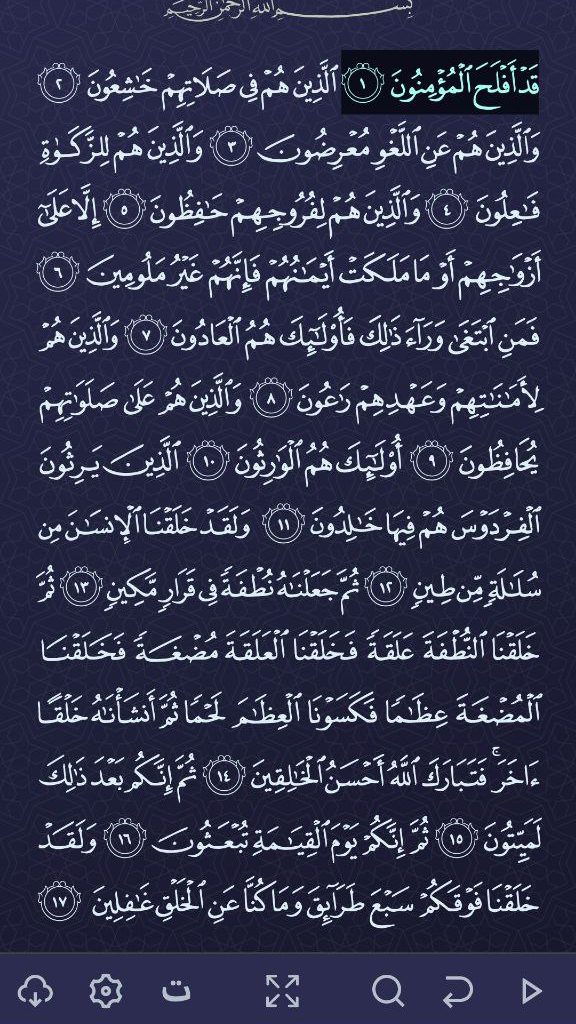 بِسْمِ اللَّهِ الرَّحْمَٰنِ الرَّحِيمِ
قَدْ أَفْلَحَ الْمُؤْمِنُونَ ١ الَّذِينَ هُمْ فِي صَلَاتِهِمْ خَٰشِعُونَ ٢
وَالَّذِينَ هُمْ عَنِ اللَّغْوِ مُعْرِضُونَ ٣ وَالَّذِينَ هُمْ لِلزَّكَوٰةِ
فَٰعِلُونَ ٤ وَالَّذِينَ هُمْ لِفُرُوجِهِمْ حَٰفِظُونَ ٥ إِلَّا عَلَىٰٓ
أَزْوَٰجِهِمْ أَوْ مَا مَلَكَتْ أَيْمَٰنُهُمْ فَإِنَّهُمْ غَيْرُ مَلُومِينَ ٦
فَمَنِ ابْتَغَىٰ وَرَآءَ ذَٰلِكَ فَأُو۟لَٰٓئِكَ هُمُ الْعَادُونَ ٧ وَالَّذِينَ هُمْ
لِأَمَٰنَٰتِهِمْ وَعَهْدِهِمْ رَٰعُونَ ٨ وَالَّذِينَ هُمْ عَلَىٰ صَلَوَٰتِهِمْ
يُحَافِظُونَ ٩ أُو۟لَٰٓئِكَ هُمُ الْوَٰرِثُونَ ١٠ الَّذِينَ يَرِثُونَ
الْفِرْدَوْسَ هُمْ فِيهَا خَٰلِدُونَ ١١ وَلَقَدْ خَلَقْنَا الْإِنسَٰنَ مِن
سُلَٰلَةٍ مِّن طِينٍ ١٢ ثُمَّ جَعَلْنَٰهُ نُطْفَةً فِي قَرَارٍ مَّكِينٍ ١٣ ثُمَّ
خَلَقْنَا النُّطْفَةَ عَلَقَةً فَخَلَقْنَا الْعَلَقَةَ مُضْغَةً فَخَلَقْنَا
الْمُضْغَةَ عِظَٰمًا فَكَسَوْنَا الْعِظَٰمَ لَحْمًا ثُمَّ أَنشَأْنَٰهُ خَلْقًا
ءَاخَرَ ۚ فَتَبَارَكَ اللَّهُ أَحْسَنُ الْخَٰلِقِينَ ١٤ ثُمَّ إِنَّكُم بَعْدَ ذَٰلِكَ
لَمَيِّتُونَ ١٥ ثُمَّ إِنَّكُمْ يَوْمَ الْقِيَٰمَةِ تُبْعَثُونَ ١٦ وَلَقَدْ
خَلَقْنَا فَوْقَكُمْ سَبْعَ طَرَآئِقَ وَمَا كُنَّا عَنِ الْخَلْقِ غَٰفِلِينَ ١٧
ت